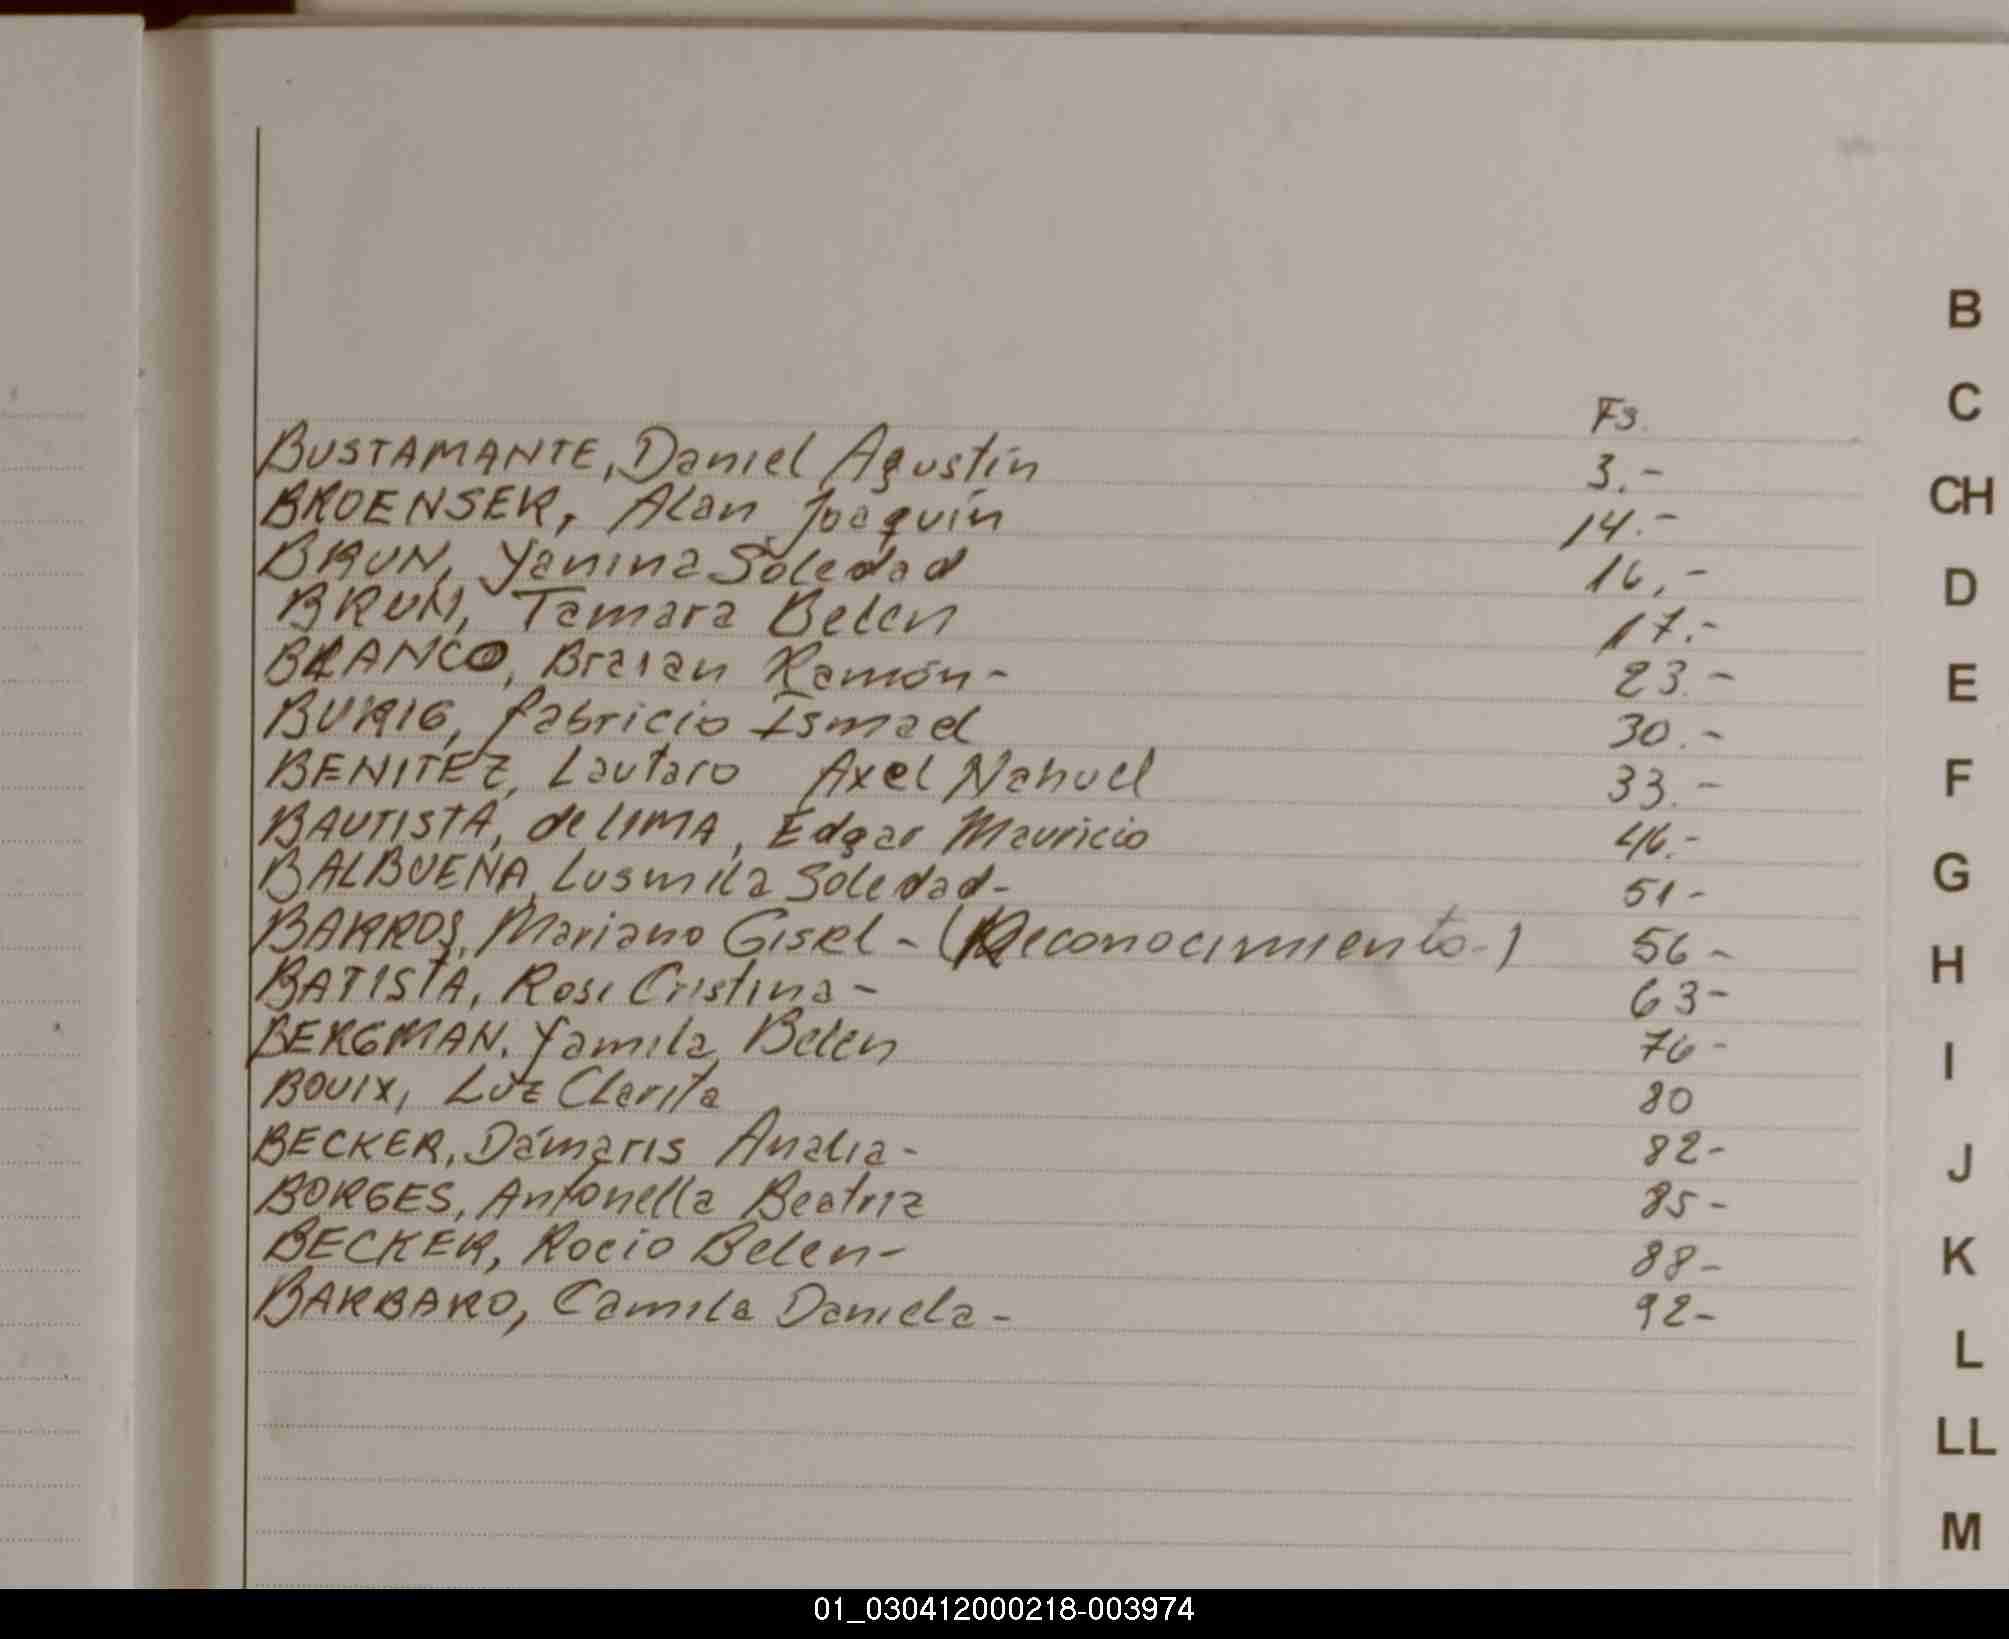 Fs.
BUSTAMANTE, Daniel Agustín 3.-
BROENSER, Alan Joaquín 14.-
BRUN, Yanina Soledad 16.-
BRUN, Tamara Belen 17.-
BRANCO, Braian Ramón- 23.-
BURIG, Fabricio Ismael 30.-
BENITEZ, Lautaro Axel Nahuel 33.-
BAUTISTA, de LIMA, Edgar Mauricio 46.-
BALBUENA, Lusmila Soledad- 51-
BARROS, Mariano Gisel - (Reconocimiento-) 56-
BATISTA, Rosi Cristina- 63-
BERGMAN, Yamila Belen 76-
BOUIX, Luz Clarita 80
BECKER, Dámaris Analia- 82-
BORGES, Antonella Beatriz 85-
BECKER, Rocio Belen- 88-
BARBARO, Camila Daniela- 92-
B
C
CH
D
E
F
G
H
I
J
K
L
LL
M
01_030412000218-003974